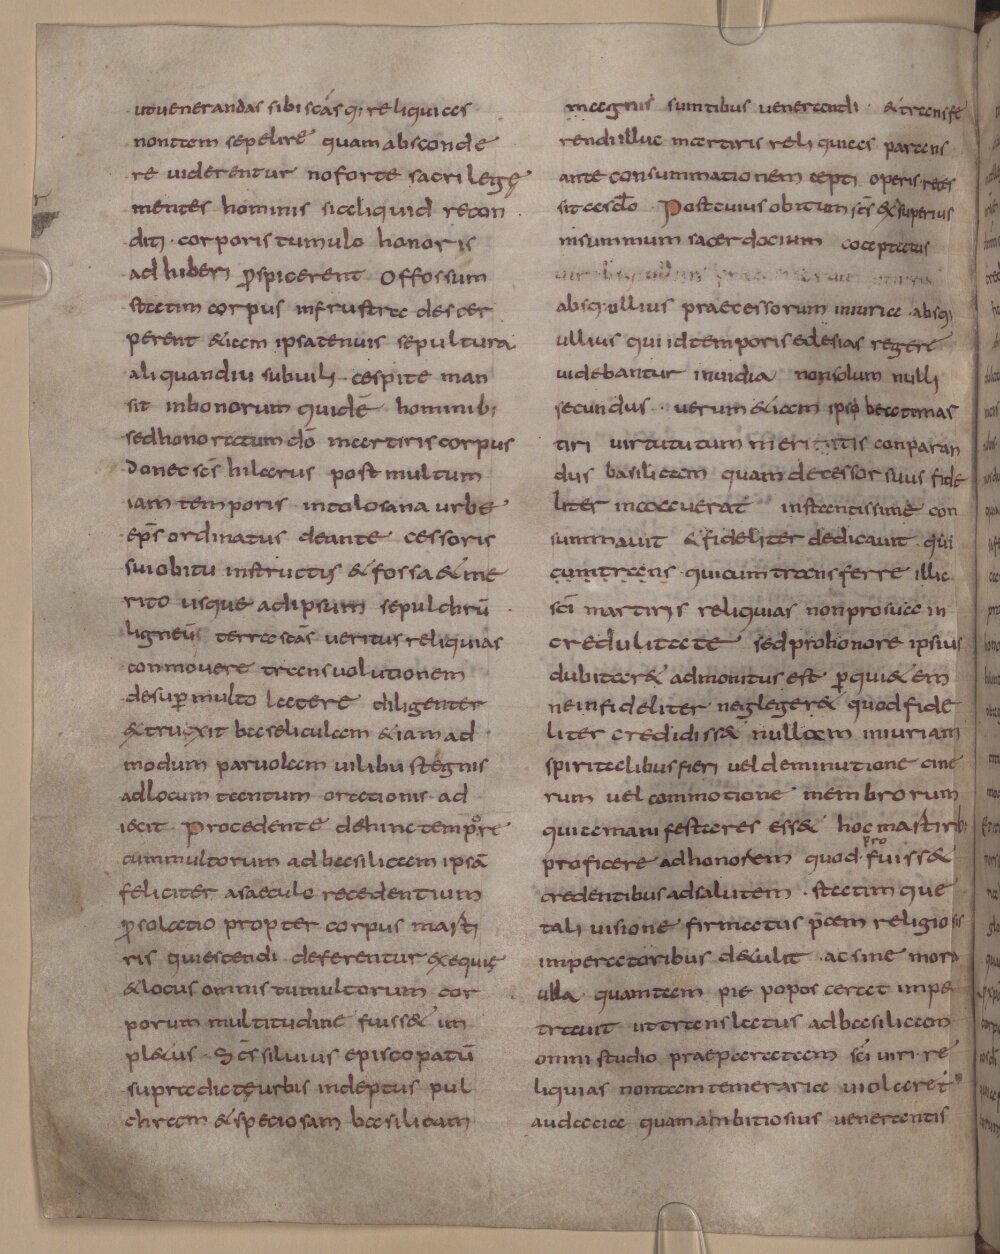 utvenerandas sibi scas q; reliquias
nontam sepelire quam absconde
re viderentur no forte sacrilege
mentes hominis sialiquid recon
diti corporis tumulo honoris
adhiberi pspicerent offossum
statim corpus infrustra descer
perent & iam ipsa tenuis sepultura
aliquandiu subvili cespite man
sit inbonorum quidē hominib;
sedhonoratum dō martiris corpus
donec scs hilarus post multum
iam temporis intolosana urbe
eps ordinatus deante cessoris
sui obitu instructis & fossa & me
rito usque adipsum sepulchrū
ligneū terra scās veritus reliquias
conmovere transvolutionem
desup multo latere diligenter
&truxit baseliculam &iam ad
modum parvolam vilibu stegnis
adlocum tantum orationis ad
iecit Procedente dehinc tempore
cummultorum adbasilicam ipsā
feliciter asaeculo recedentium
psolatio propter corpus marti
ris quiescendi deferentur exequię
&locus omnis tumultorum cor
porum multitudine fuiss& im
pl&us Scs silvius episcopatū
supradictę urbis indeptus pul
chram & speciosam basilicam
magnis sumtibus venerandi &transfe
rendi illuc martiris reliquias parans
ante consummationem cepti operis reces
sit asclo Postcuius obitum scs & superius
insummum sacerdocium coaptatus
absq; ullius praecessorum iniuria absq;
ullius qui id temporis eclesias regere
videbantur invidia nonsolum nulli
secundus verum &iam ipso beatomas
tiri virtutu tum meritis conparan
dus basilicam quam decessor suus fide
liter inocaverat instantissime con
summavit & fideliter dedicavit qui
cumtrans quicum transferre illic
sci martiris reliquias nonprosua in
credulitate sedprohonore ipsius
dubitar& admonitus est p qui&ēm
neinfideliter negleger& quodfide
liter credidiss& nullam iniuriam
spiritalibus fieri vel deminutione cine
rum vel commotione membrorum
quicmani festares ess& hoc martirib;
proficere adhonorem quod pro fuiss&
credentibus adsalutem statim que
tali visione firmatus pcem religiosis
imperatoribus d&ulit ac sine mora
ulla quamtam pie poposcerat impe
travit uttranslatus adbasilicam
omni studio praeparatam sci viri re
liquias nontam temeraria violaret
audacia quam ambitiosius venerantis